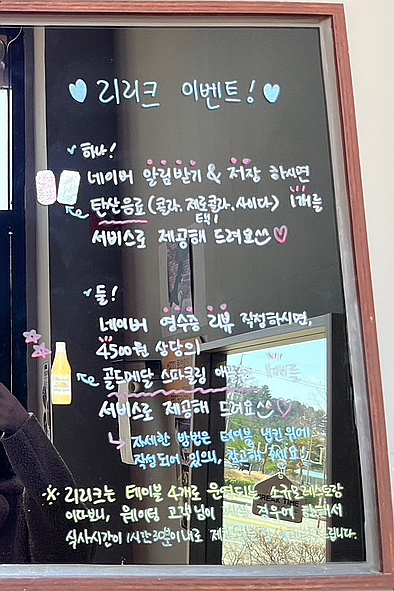 리리크 이벤트!
하나!
네이버 알림받기 & 저장 하시면
탄산음료 (콜라, 제로콜라, 사이다) 1개를
택1
서비스로 제공해 드려요
둘!
네이버 영수증 리뷰 작성하시면,
4500원 상당의
골드메달 스파클링 애플쥬스 1병을
서비스로 제공해 드려요
자세한 방법은 테이블 냅킨 위에
작성되어 있으니, 참고해 주세요!
리리크는 테이블 4개로 운영되는 소규모레스토랑
이다보니, 웨이팅 고객님이 계실 경우에 한해서
식사시간이 1시간 30분 이내로 제한
BREAK TIME